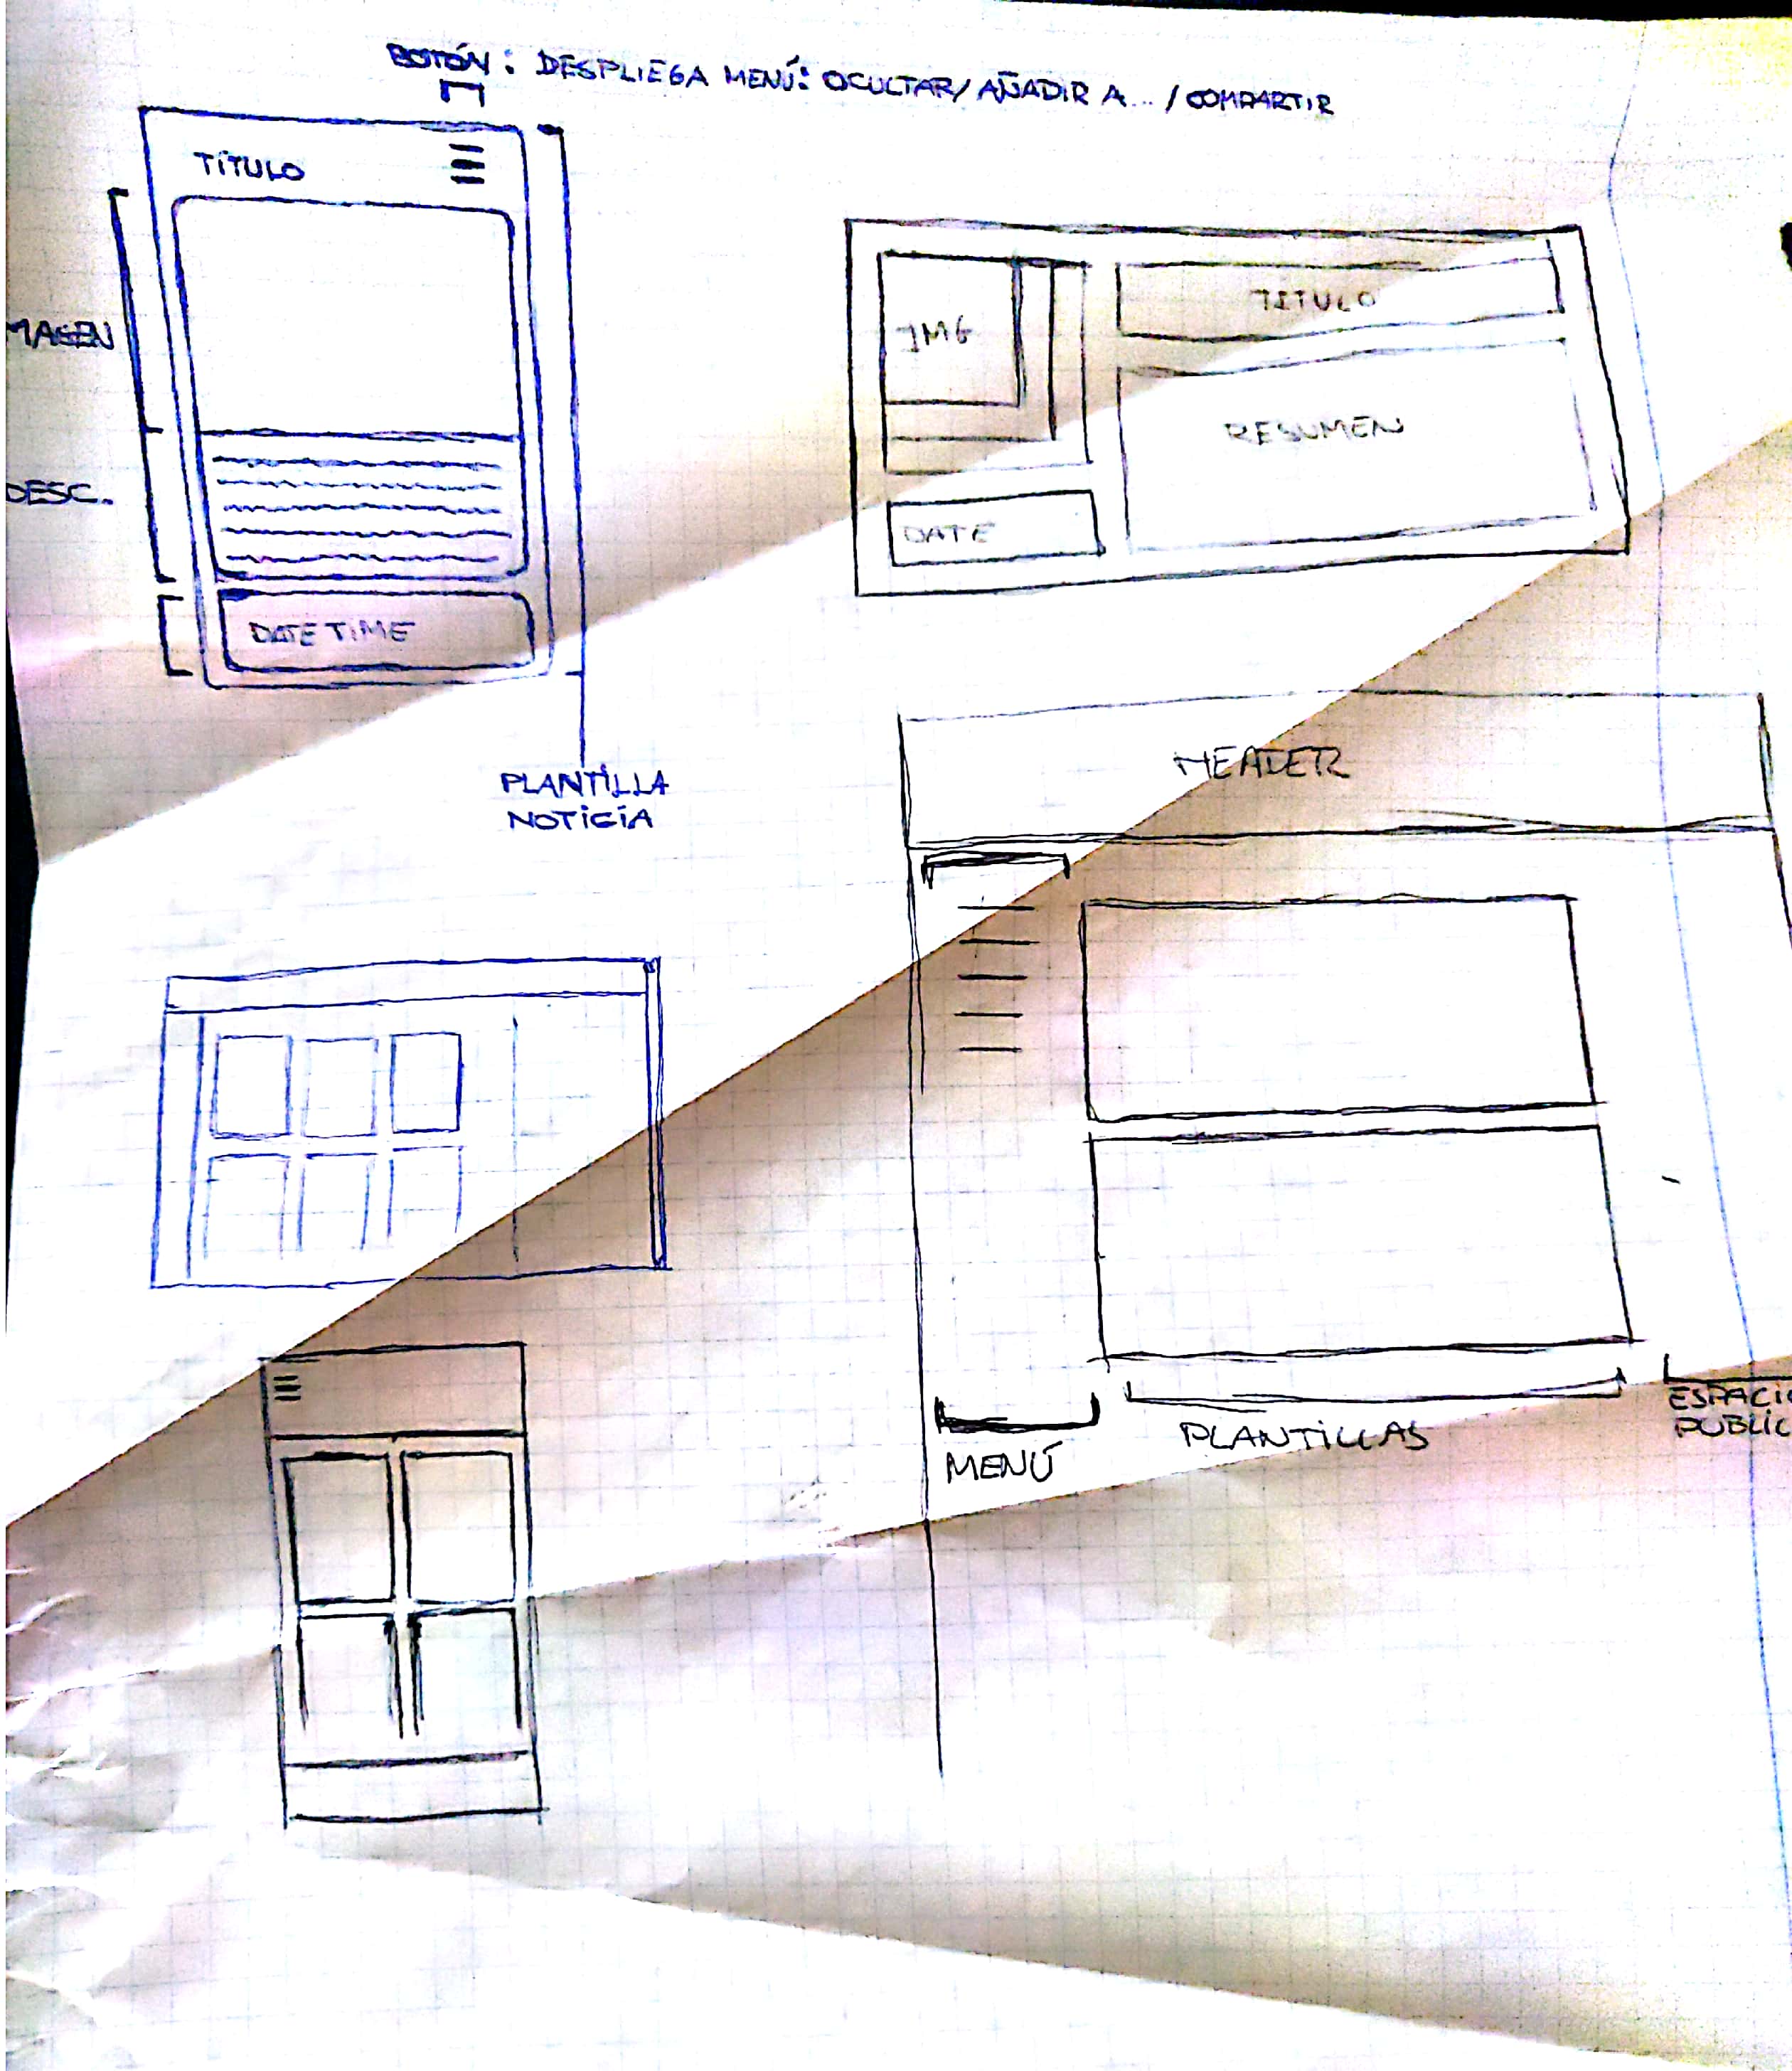 BOTÓN: DESPLIEGA MENÚ: OCULTAR/AÑADIR A.../COMPARTIR
TÍTULO
MAGEN
DESC.
DATE TIME
PLANTILLA
NOTICIA
IMG
TITULO
RESUMEN
DATE
HEADER
MENÚ
PLANTILLAS
ESPACI
PUBLIC